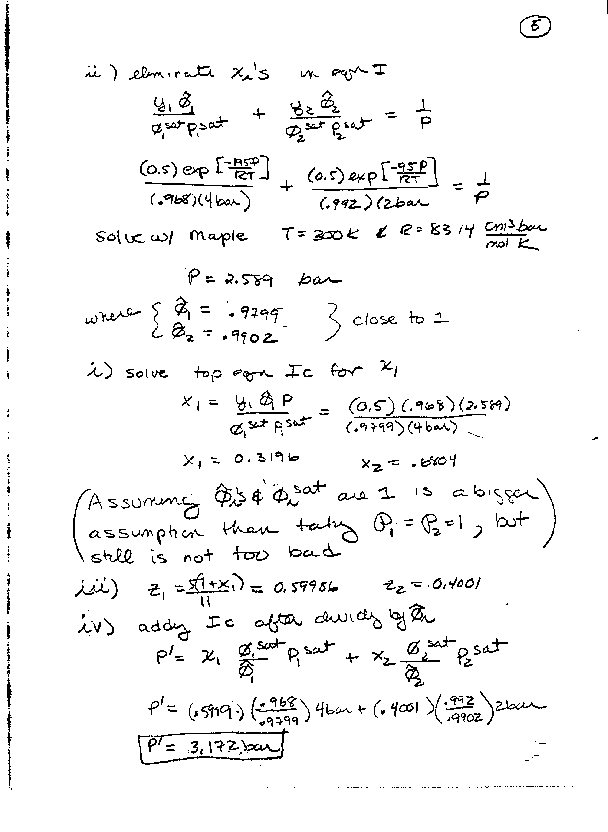 5
ii) eliminate xi's in eqn I
y₁ φ̂₁ / φ₁sat P₁sat + y₂ φ̂₂ / φ₂sat P₂sat = 1/P
(0.5) exp[-195P/RT] / (.968)(4bar) + (0.5) exp[-95P/RT] / (.992)(2bar = 1/P
solve w/ Maple T = 300K & R = 83.14 cm³bar/mol K
P = 2.589 bar
where { φ̂₁ = .9799
φ̂₂ = .9902 } close to 1
i) solve top eqn Ic for x₁
x₁ = y₁ φ̂₁ P / φ₁sat P₁sat = (0.5)(.968)(2.589) / (.9799)(4bar)
x₁ = 0.3196 x₂ = .6804
(Assuming φ̂i's & φisat are 1 is a bigger
assumption than taking P₁ = P₂ = 1, but
still is not too bad)
iii) z₁ = (1+x₁)/11 = 0.59986 z₂ = 0.4001
iv) adding Ic after dividing by φ̂i
P' = x₁ φ₁sat/φ̂₁ P₁sat + x₂ φ₂sat/φ̂₂ P₂sat
P' = (.5999)(.968/.9799)4bar + (.4001)(.992/.9902)2bar
P' = 3.172 bar